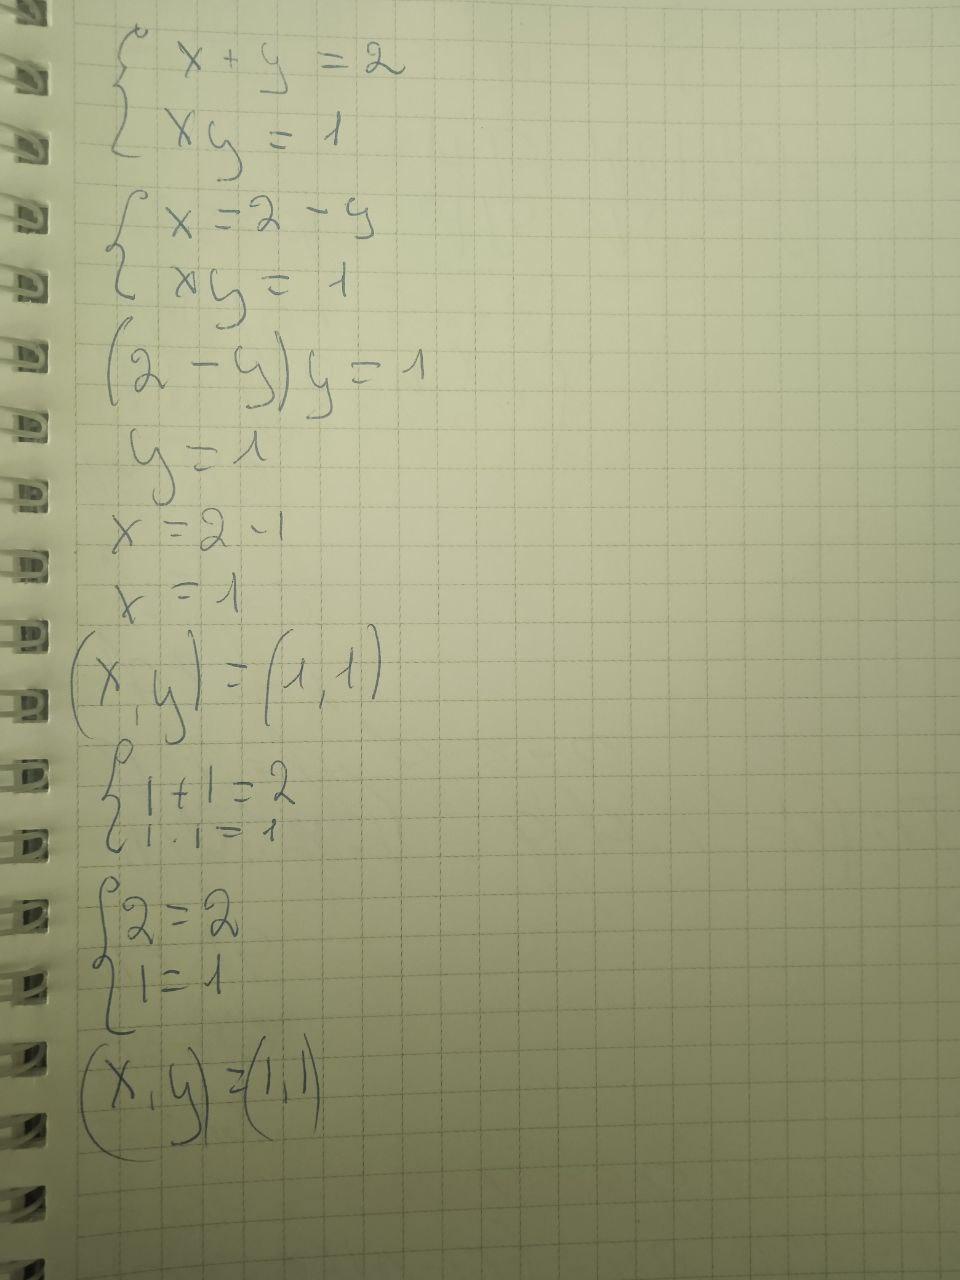 { x + y = 2
xy = 1
{ x = 2 - y
xy = 1
(2 - y) y = 1
y = 1
x = 2 - 1
x = 1
(x, y) = (1, 1)
{ 1 + 1 = 2
1 · 1 = 1
{ 2 = 2
1 = 1
(x, y) = (1, 1)